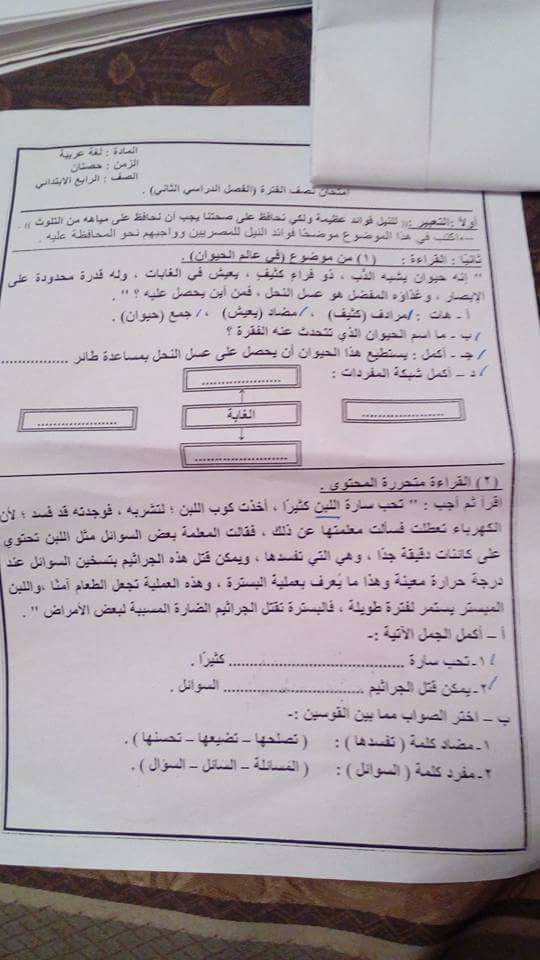 المادة : لغة عربية
الزمن : حصتان
الصف : الرابع الابتدائي
امتحان نصف الفترة (الفصل الدراسي الثاني) .
أولاً : التعبير : " للنيل فوائد عظيمة ولكي نحافظ على صحتنا يجب ان نحافظ على مياهه من التلوث " .
-- اكتب في هذا الموضوع موضحًا فوائد النيل للمصريين وواجبهم نحو المحافظة عليه .
ثانيًا : القراءة : (١) من موضوع (في عالم الحيوان) .
" إنه حيوان يشبه الدُّب ، ذو فراءٍ كثيفٍ ، يعيش في الغابات ، وله قدرة محدودة على
الإبصار ، وغذاؤه المفضل هو عسل النحل ، فمن أين يحصل عليه ؟ " .
أ - هات : مرادف (كثيف) ، مضاد (يعيش) ، جمع (حيوان) .
ب - ما اسم الحيوان الذي تتحدث عنه الفقرة ؟
جـ - أكمل : يستطيع هذا الحيوان أن يحصل على عسل النحل بمساعدة طائر ....................
د - أكمل شبكة المفردات :
....................
.................... الغابة ....................
.......................
(٢) القراءة متحررة المحتوي .
اقرأ ثم أجب : " تحب سارة اللبن كثيرًا ، أخذت كوب اللبن ؛ لتشربه ، فوجدته قد فسد ؛ لأن
الكهرباء تعطلت فسألت معلمتها عن ذلك ، فقالت المعلمة بعض السوائل مثل اللبن تحتوي
على كائنات دقيقة جدًا ، وهي التي تفسدها ، ويمكن قتل هذه الجراثيم بتسخين السوائل عند
درجة حرارة معينة وهذا ما يُعرف بعملية البسترة ، وهذه العملية تجعل الطعام آمنًا ،واللبن
المبستر يستمر لفترة طويلة ، فالبسترة تقتل الجراثيم الضارة المسببة لبعض الأمراض " .
أ – أكمل الجمل الآتية :-
١- تحب سارة ........................................ كثيرًا .
٢- يمكن قتل الجراثيم ................................ السوائل .
ب – اختر الصواب مما بين القوسين :-
١- مضاد كلمة ( تفسدها ) : ( تصلحها – تضيعها – تحسنها ) .
٢- مفرد كلمة ( السوائل ) : ( المسائلة – السائل – السؤال ) .